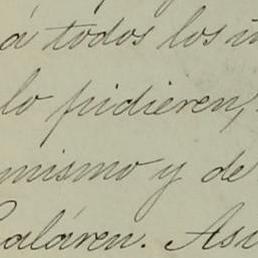 á todos los
lo pidieren,
mismo y de
Asi